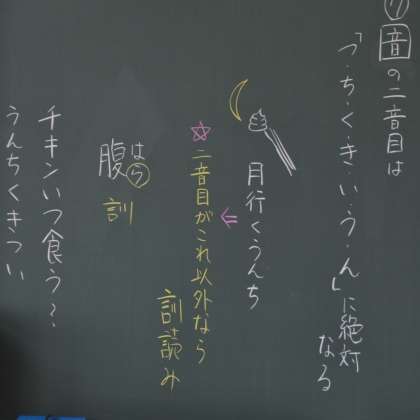 ⑺ 音の二音目は
「つ・ち・く・き・い・う・ん」に絶対
なる
月行くうんち
☆二音目がこれ以外なら
訓読み
腹 はら
訓
チキンいつ食う?
うんちくきつい